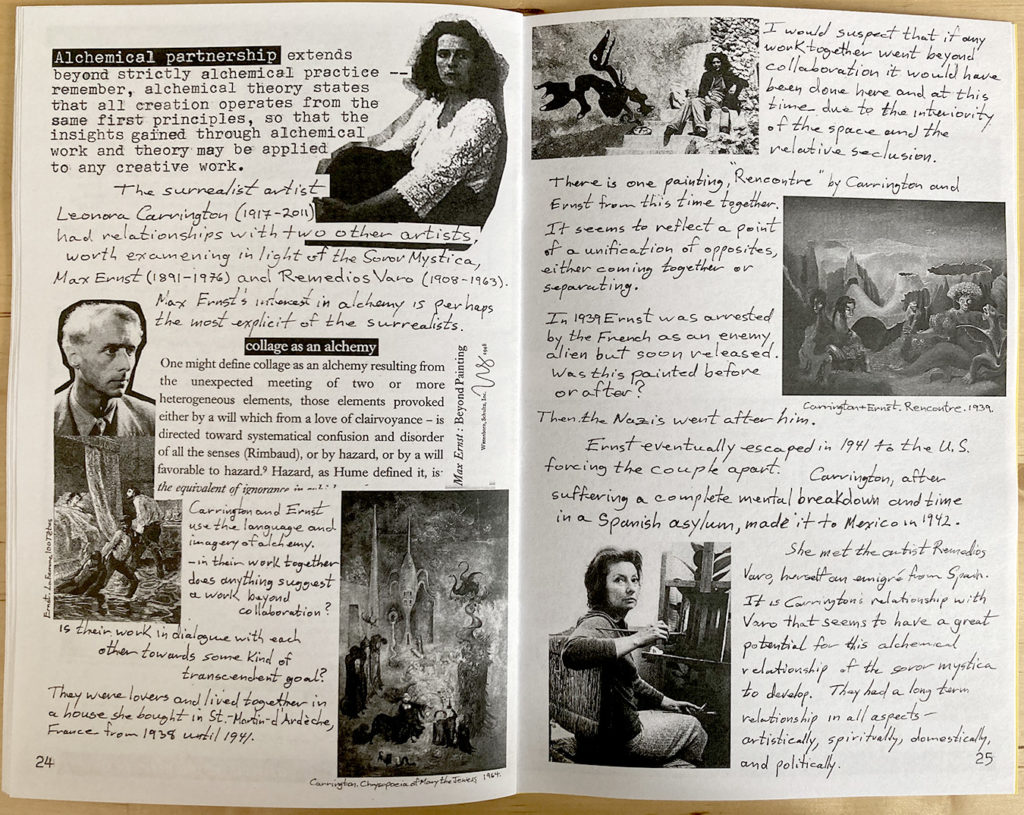 Alchemical partnership extends
beyond strictly alchemical practice --
remember, alchemical theory states
that all creation operates from the
same first principles, so that the
insights gained through alchemical
work and theory may be applied
to any creative work.
The surrealist artist
Leonora Carrington (1917-2011)
had relationships with two other artists,
worth examening in light of the Soror Mystica,
Max Ernst (1891-1976) and Remedios Varo (1908-1963).
Max Ernst's interest in alchemy is perhaps
the most explicit of the surrealists.
collage as an alchemy
One might define collage as an alchemy resulting from
the unexpected meeting of two or more
heterogeneous elements, those elements provoked
either by a will which from a love of clairvoyance – is
directed toward systematical confusion and disorder
of all the senses (Rimbaud), or by hazard, or by a will
favorable to hazard.⁹ Hazard, as Hume defined it, is:
the equivalent of ignorance in
Max Ernst: Beyond Painting
Wittenborn, Schultz, Inc. 1948
Ernst. La Femme 100 Têtes
Carrington and Ernst
use the language and
imagery of alchemy.
- in their work together
does anything suggest
a work beyond
collaboration?
Is their work in dialogue with each
other towards some kind of
transcendent goal?
They were lovers and lived together in
a house she bought in St.-Martin-d'Ardèche,
France from 1938 until 1941.
24
Carrington. Chrysopoeia of Mary the Jewess 1964.
I would suspect that if any
work together went beyond
collaboration it would have
been done here and at this
time - due to the interiority
of the space and the
relative seclusion.
There is one painting, "Rencontre" by Carrington and
Ernst from this time together.
It seems to reflect a point
of a unification of opposites,
either coming together or
separating.
In 1939 Ernst was arrested
by the French as an enemy
alien but soon released.
Was this painted before
or after?
Carrington + Ernst. Rencontre. 1939.
Then the Nazis went after him.
Ernst eventually escaped in 1941 to the U.S.
forcing the couple apart. Carrington, after
suffering a complete mental breakdown and time
in a Spanish asylum, made it to Mexico in 1942.
She met the artist Remedios
Varo, herself an emigré from Spain.
It is Carrington's relationship with
Varo that seems to have a great
potential for this alchemical
relationship of the soror mystica
to develop. They had a long term
relationship in all aspects –
artistically, spiritually, domestically,
and politically.
25